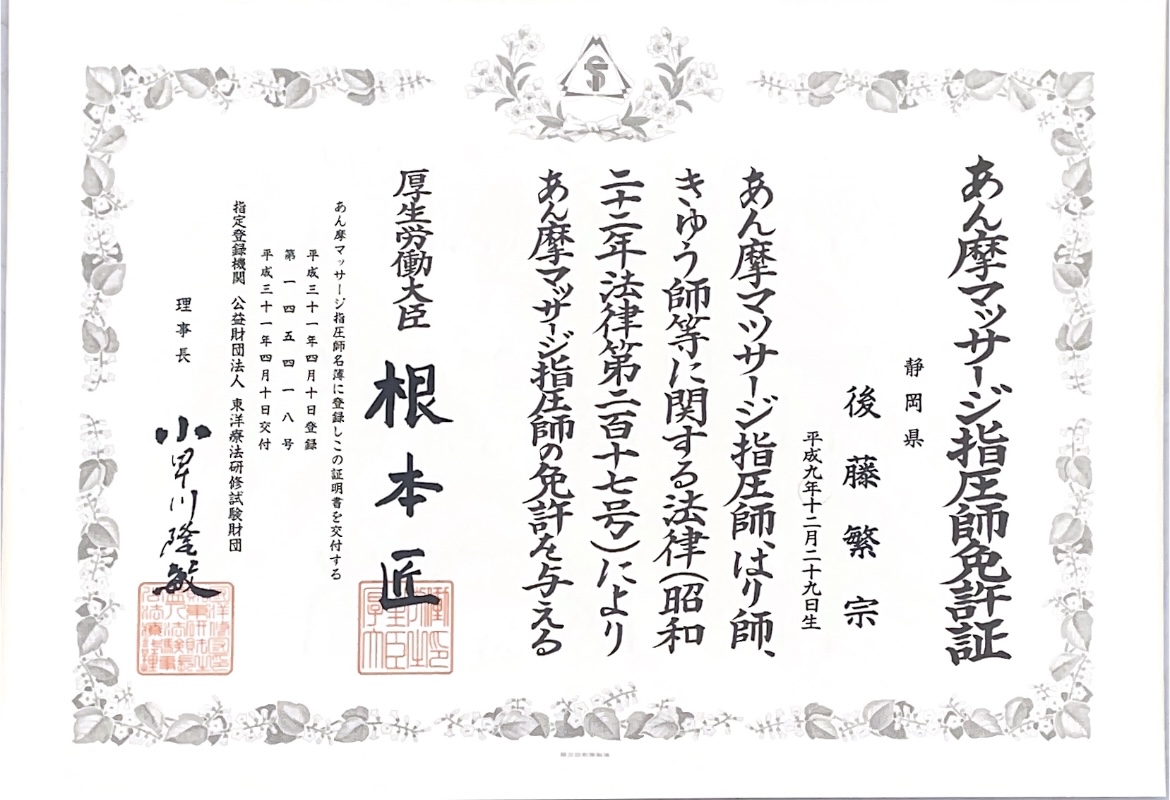 あん摩マッサージ指圧師免許証
静岡県
後藤繁宗
平成九年十二月二十九日生
あん摩マッサージ指圧師、はり師、
きゆう師等に関する法律(昭和
二十二年法律第二百十七号)により
あん摩マッサージ指圧師の免許を与える
厚生労働大臣 根本匠
あん摩マッサージ指圧師名簿に登録しこの証明書を交付する
平成三十一年四月十日登録
第一四五四一八号
平成三十一年四月十日交付
指定登録機関 公益財団法人 東洋療法研修試験財団
理事長 小早川隆敏